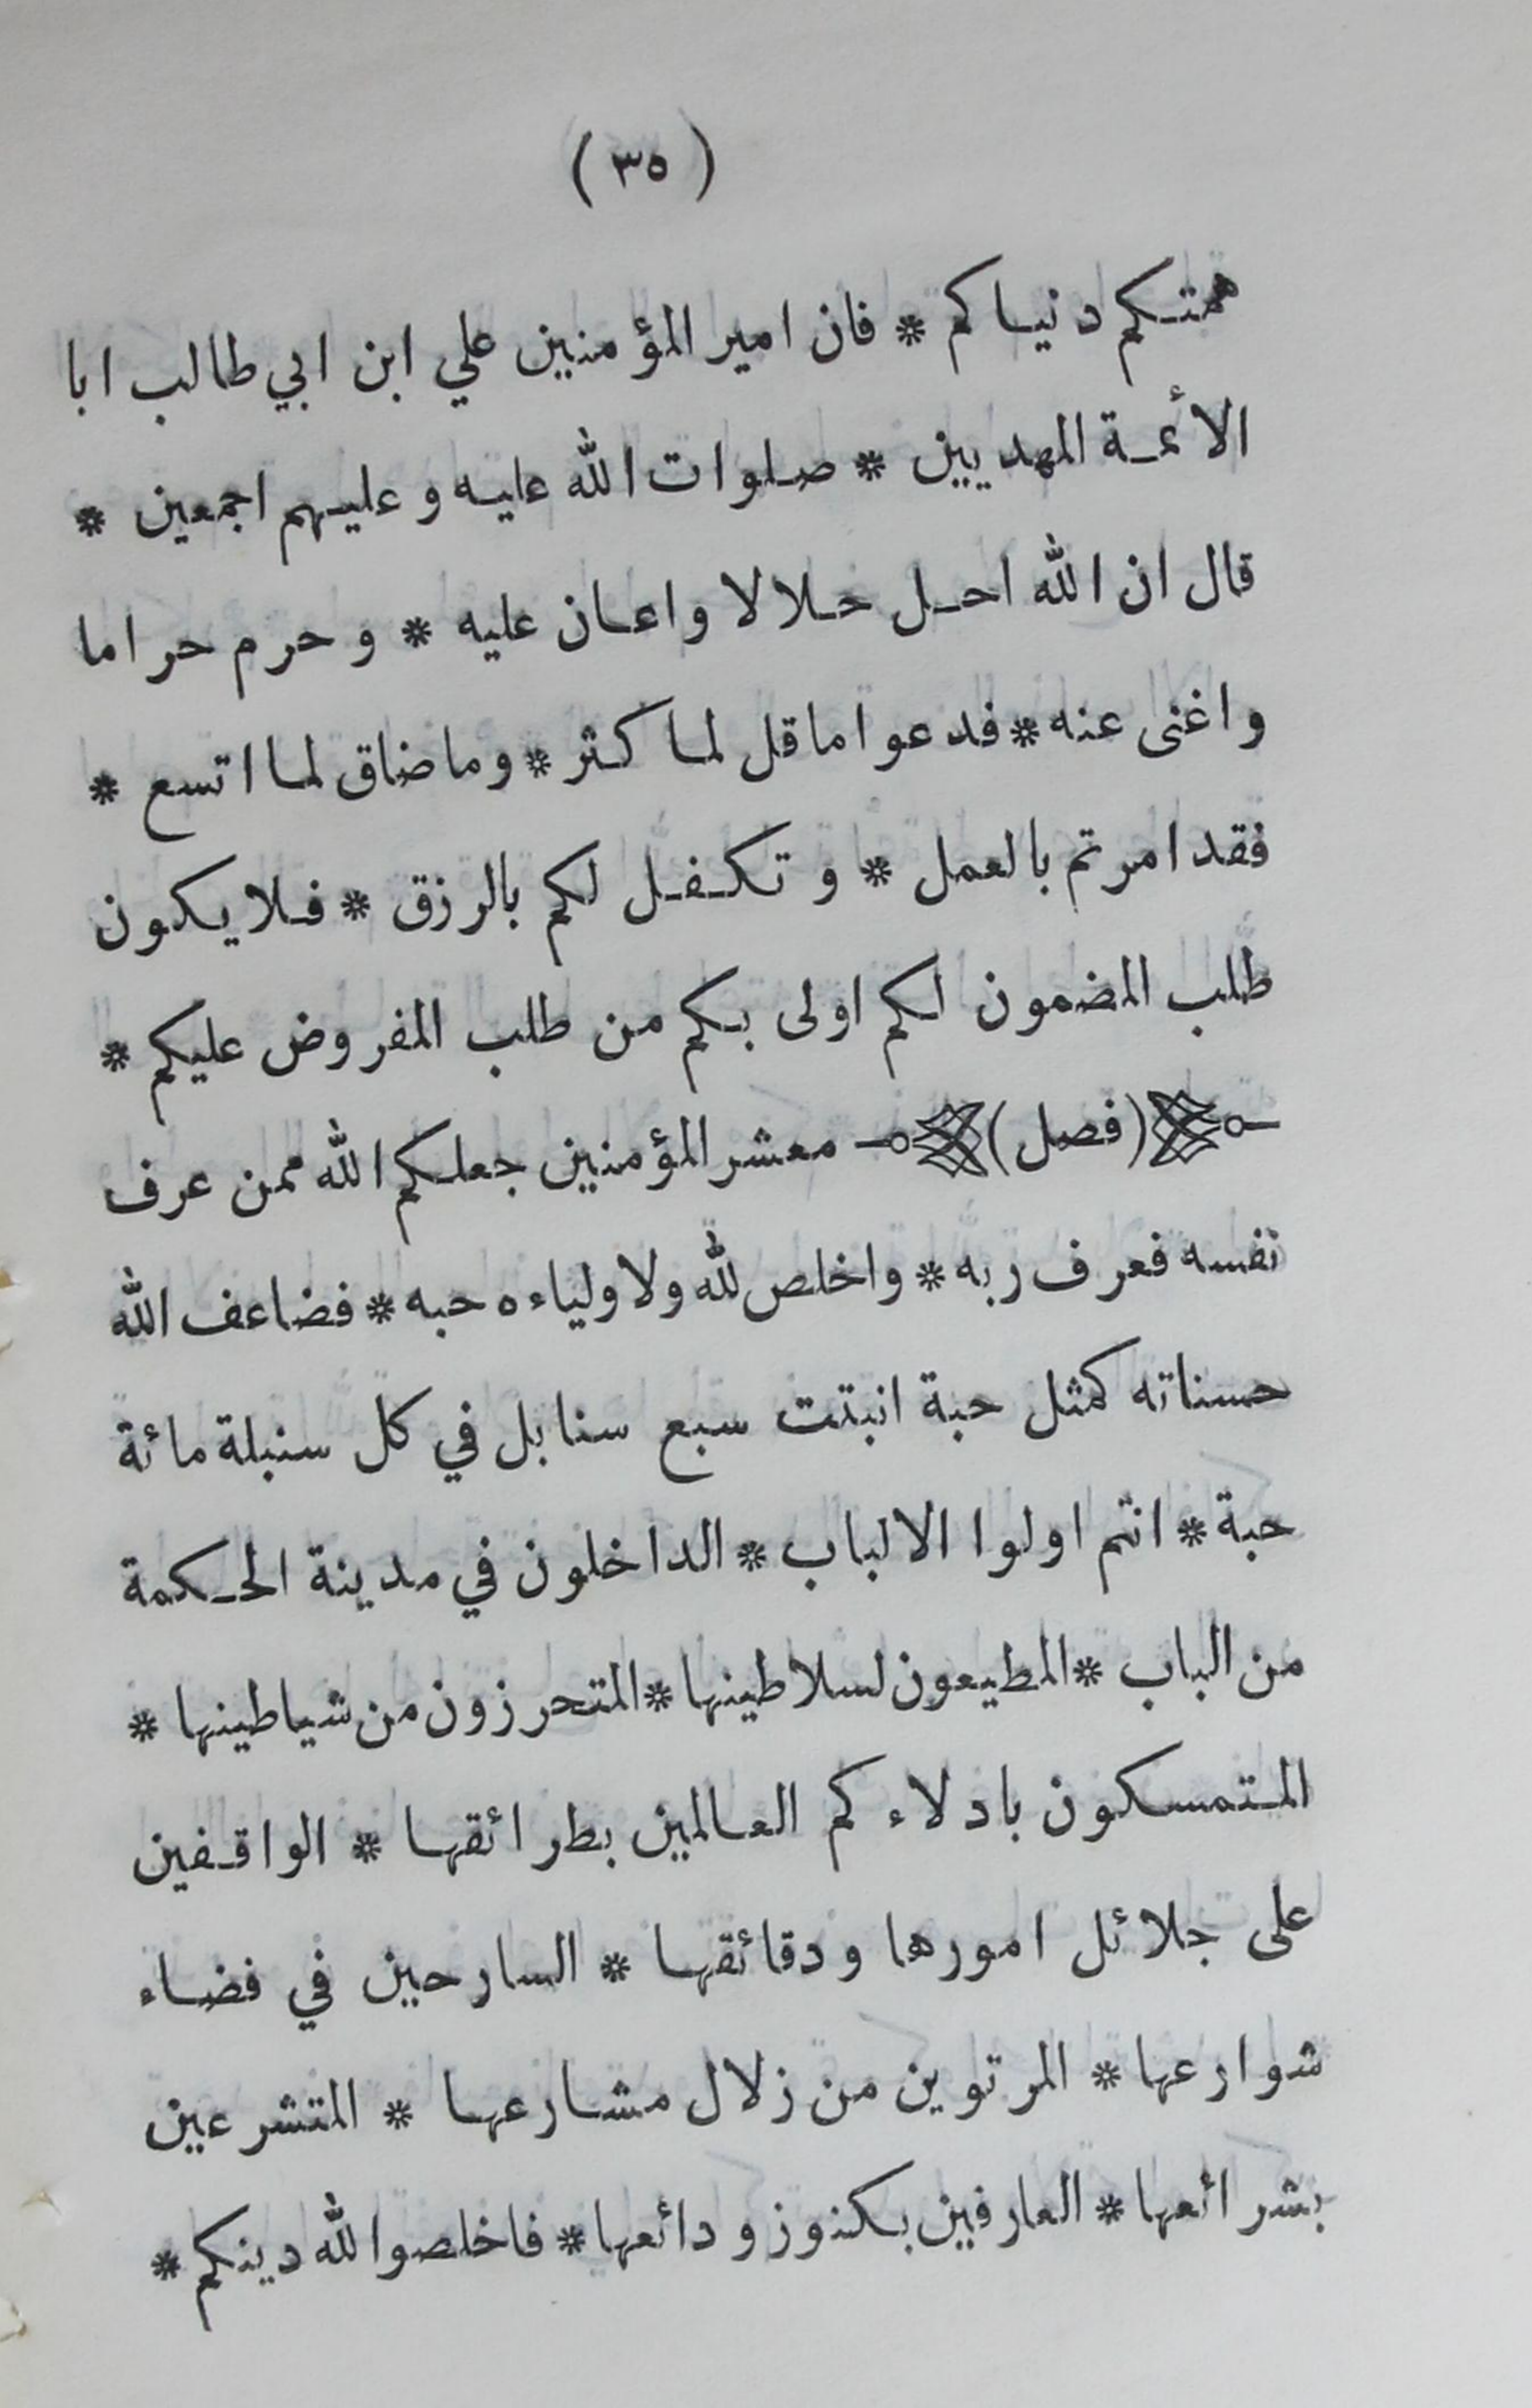 ( ٣٥ )
همتكم دنياكم * فان امير المؤمنين علي ابن ابي طالب ابا
الأئمة المهديين * صلوات الله عليه وعليهم اجمعين *
قال ان الله احل حلالا واعان عليه * وحرم حراما
واغنى عنه * فدعوا ما قل لما كثر * وما ضاق لما اتسع *
فقد امرتم بالعمل * وتكفل لكم بالرزق * فلا يكون
طلب المضمون لكم اولى بكم من طلب المفروض عليكم *
(فصل) معشر المؤمنين جعلكم الله ممن عرف
نفسه فعرف ربه * واخلص لله ولاولياءه حبه * فضاعف الله
حسناته كمثل حبة انبتت سبع سنابل في كل سنبلة مائة
حبة * انتم اولوا الالباب * الداخلون في مدينة الحكمة
من الباب * المطيعون لسلاطينها * المتحرزون من شياطينها *
المتمسكون بادلاءكم العالمين بطرائقها * الواقفين
على جلائل امورها ودقائقها * السارحين في فضاء
شوارعها * المرتوين من زلال مشارعها * المتشرعين
بشرائعها * العارفين بكنوز ودائعها * فاخلصوا لله دينكم *